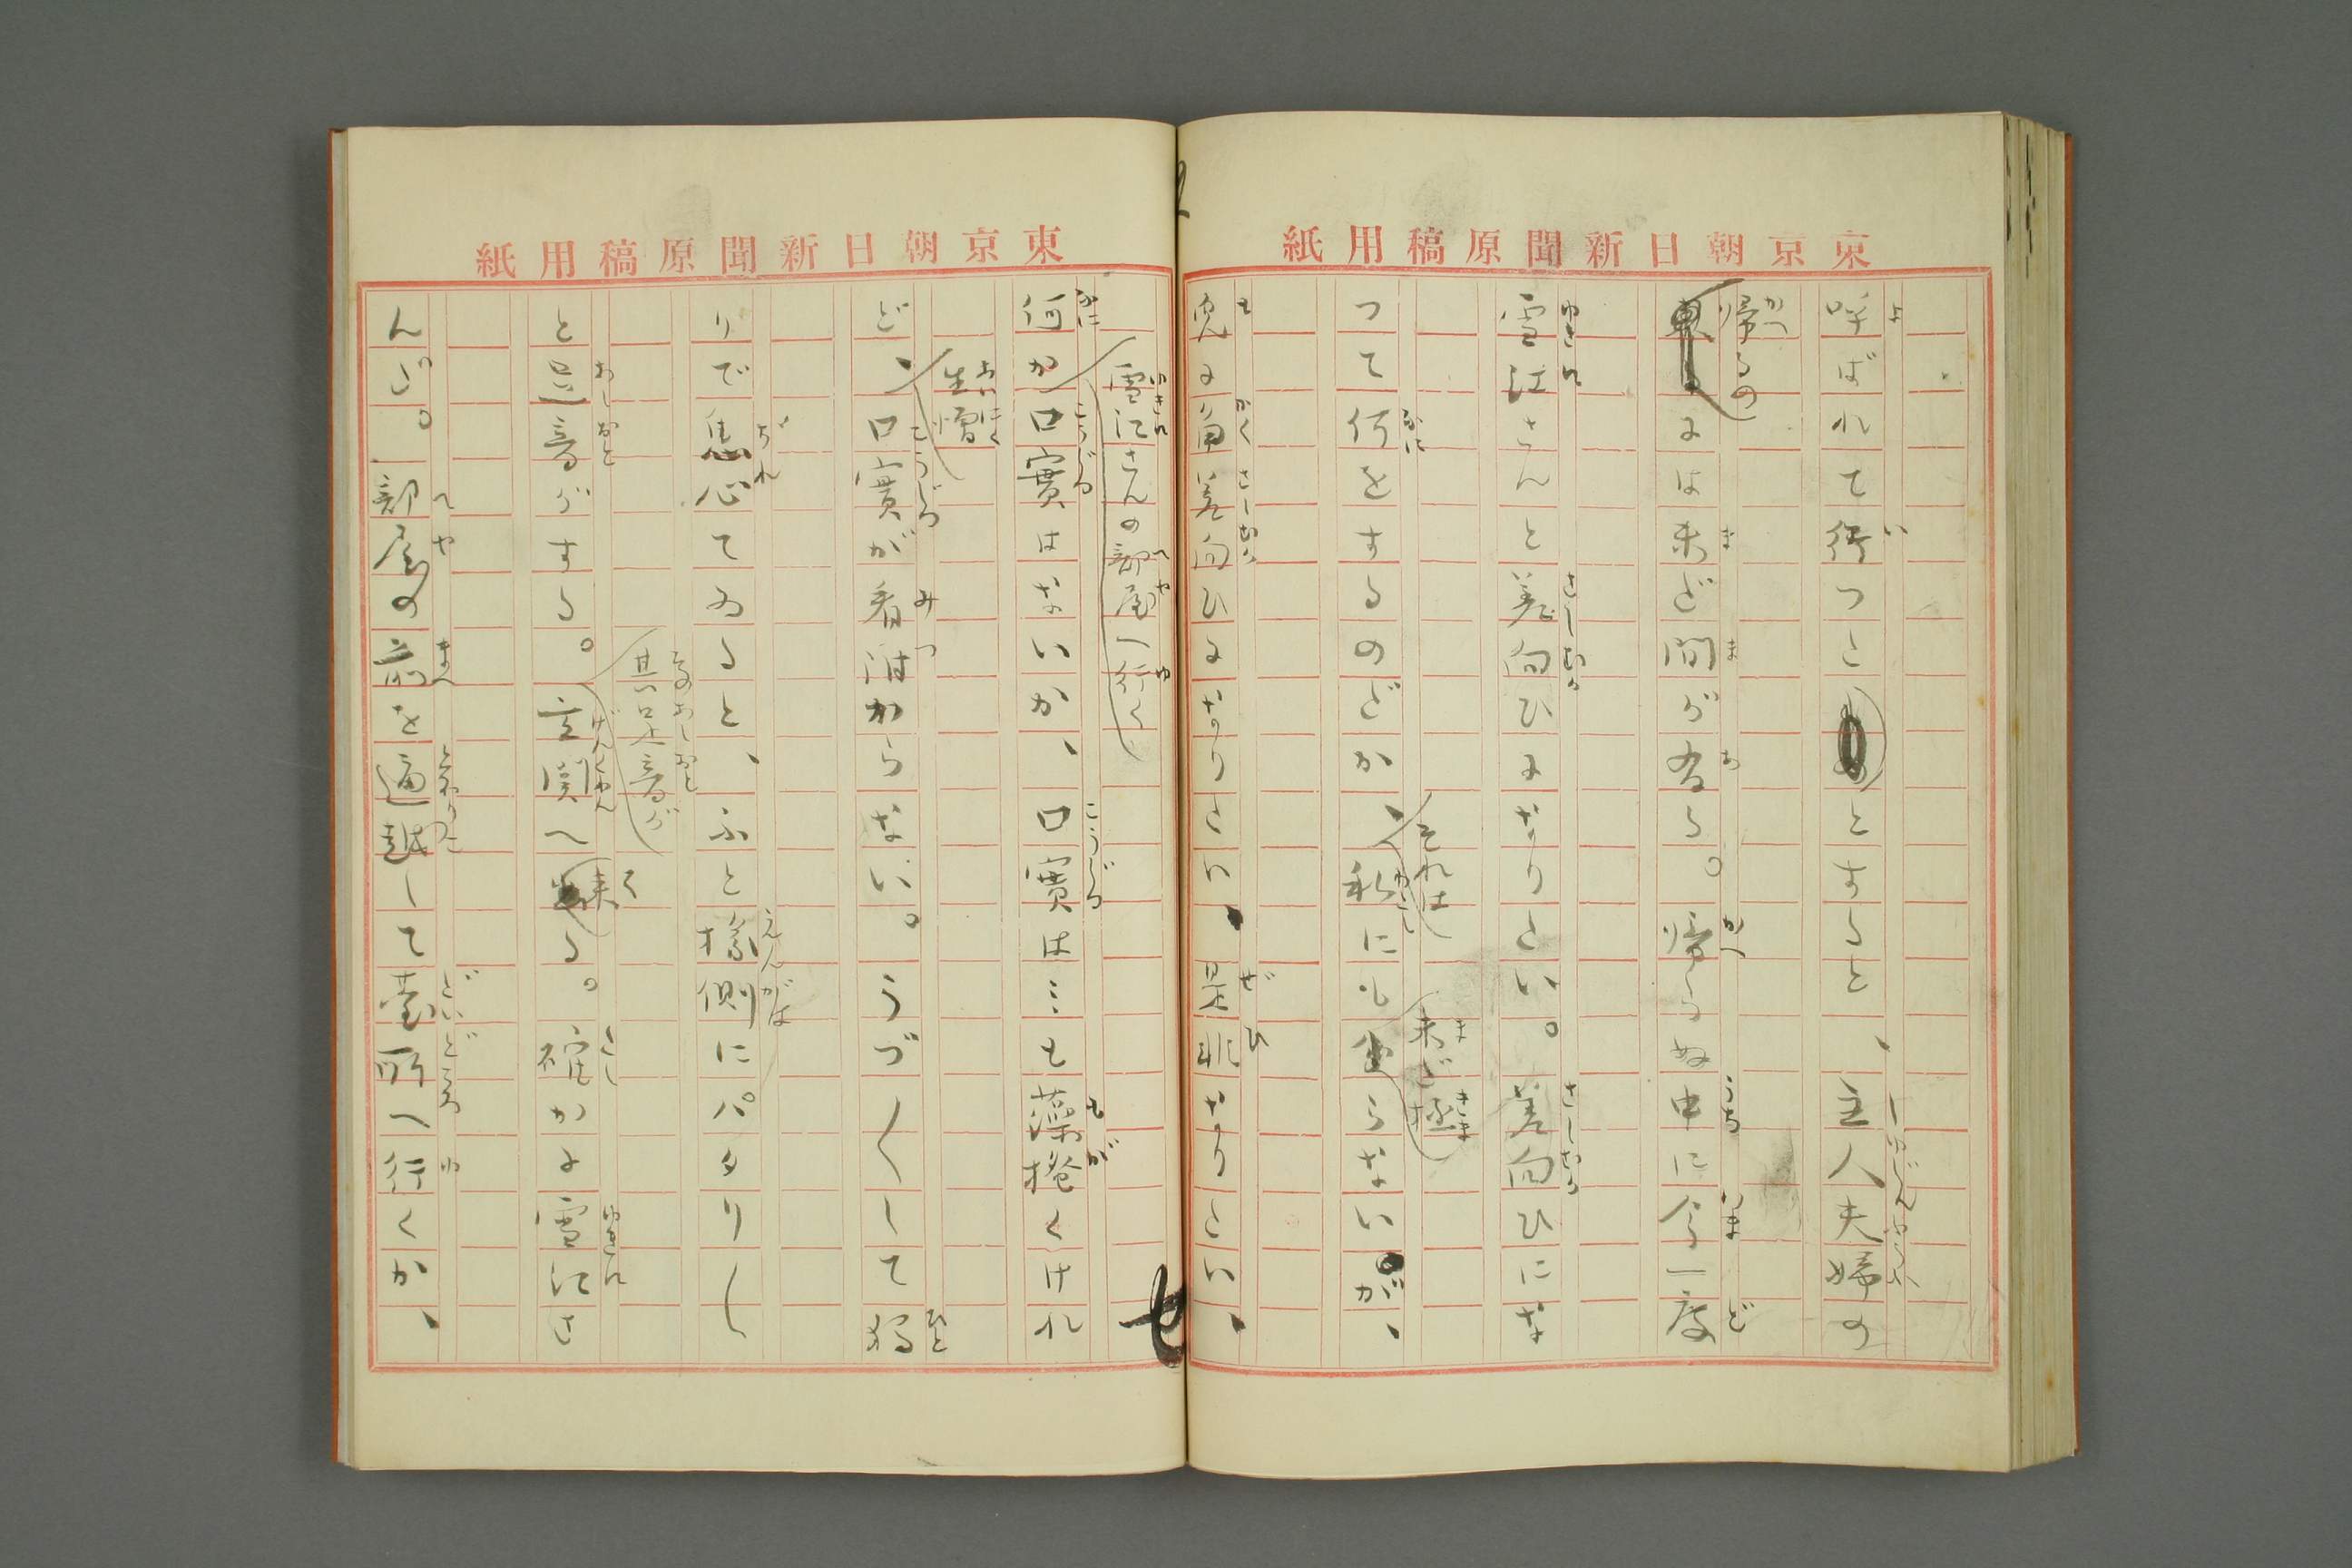 東京朝日新聞原稿用紙
呼ばれて行つたとすると、主人夫婦の
帰るのには未だ間が有る。帰らぬ中に今一度
雪江さんと差向ひになりたい。差向ひにな
つて何をするのだか、それは私にも未だ極らないが、
兎に角差向ひになりたい。是非なりたい、
東京朝日新聞原稿用紙
雪江さんの部屋へ行く
何か口實はないか、口實は…と藻搔くけれ
ど、生憎口實が看附からない。うづ〱して独
りで焦心てゐると、ふと椽側にバタリ〱
と足音がする。其足音が玄関へ来る。確かに雪江さ
んだ。部屋の前を通越して臺所へ行くか、